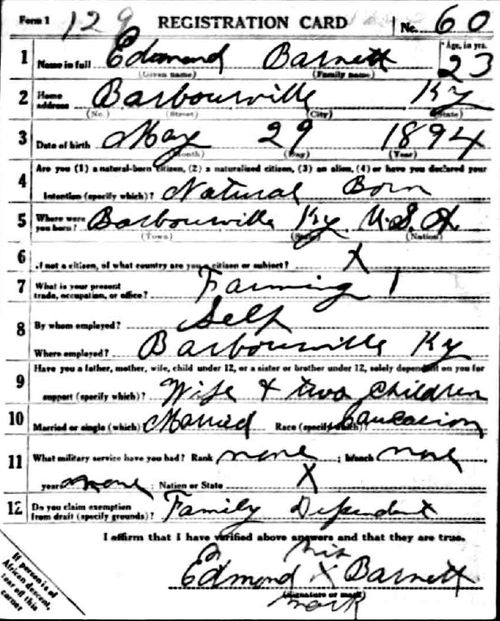 Form 1 129 REGISTRATION CARD No. 60
1 Name in full Edmond Barnett Age, in yrs. 23
(Given name) (Family name)
2 Home address Barbourville Ky
(No.) (Street) (City) (State)
3 Date of birth May 29 1894
(Month) (Day) (Year)
Are you (1) a natural-born citizen, (2) a naturalized citizen, (3) an alien, (4) or have you declared your
4 intention (specify which)? Natural Born
5 Where were you born? Barbourville Ky U.S.A
(Town) (State) (Nation)
6 If not a citizen, of what country are you a citizen or subject? X
7 What is your present trade, occupation, or office? Farming 1
8 By whom employed? Self
Where employed? Barbourville Ky
9 Have you a father, mother, wife, child under 12, or a sister or brother under 12, solely dependent on you for
support (specify which)? Wife & two children
10 Married or single (which) Married Race (specify which)? Caucasion
11 What military service have you had? Rank none ; branch none
years none ; Nation or State X
12 Do you claim exemption from draft (specify grounds)? Family Dependent
I affirm that I have verified above answers and that they are true.
his
Edmond X Barnett
(Signature or mark)
mark
If person is of
African descent,
tear off this
corner